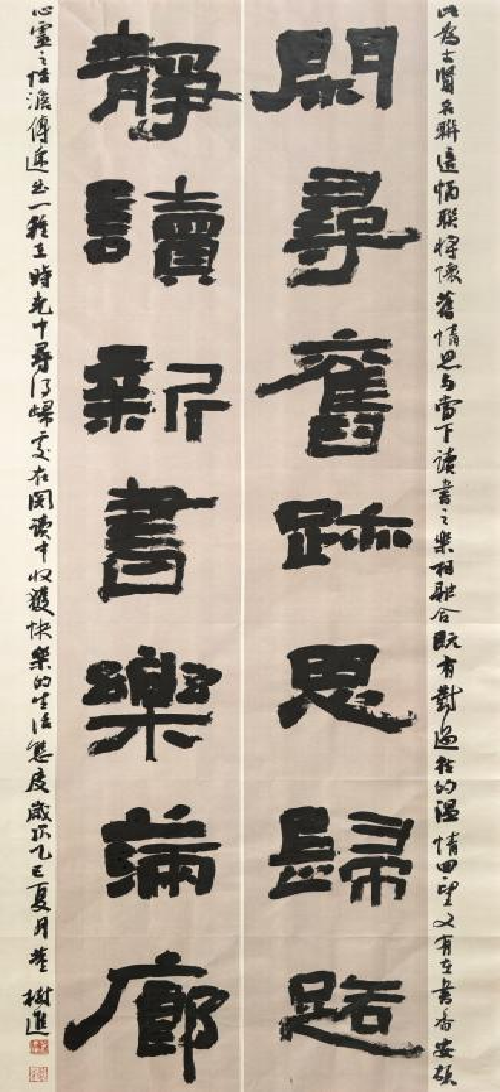 此為古賢名聯這幅联將懷舊情思与當下讀書之樂相融合既有對過往的溫情回望又有在書香安頓
閑尋舊跡思歸路
靜讀新書樂滿廊
心靈之恬澹傳遞出一種在時光中尋得歸處在閱讀中收獲快樂的生活態度歲次乙巳夏月 樹進